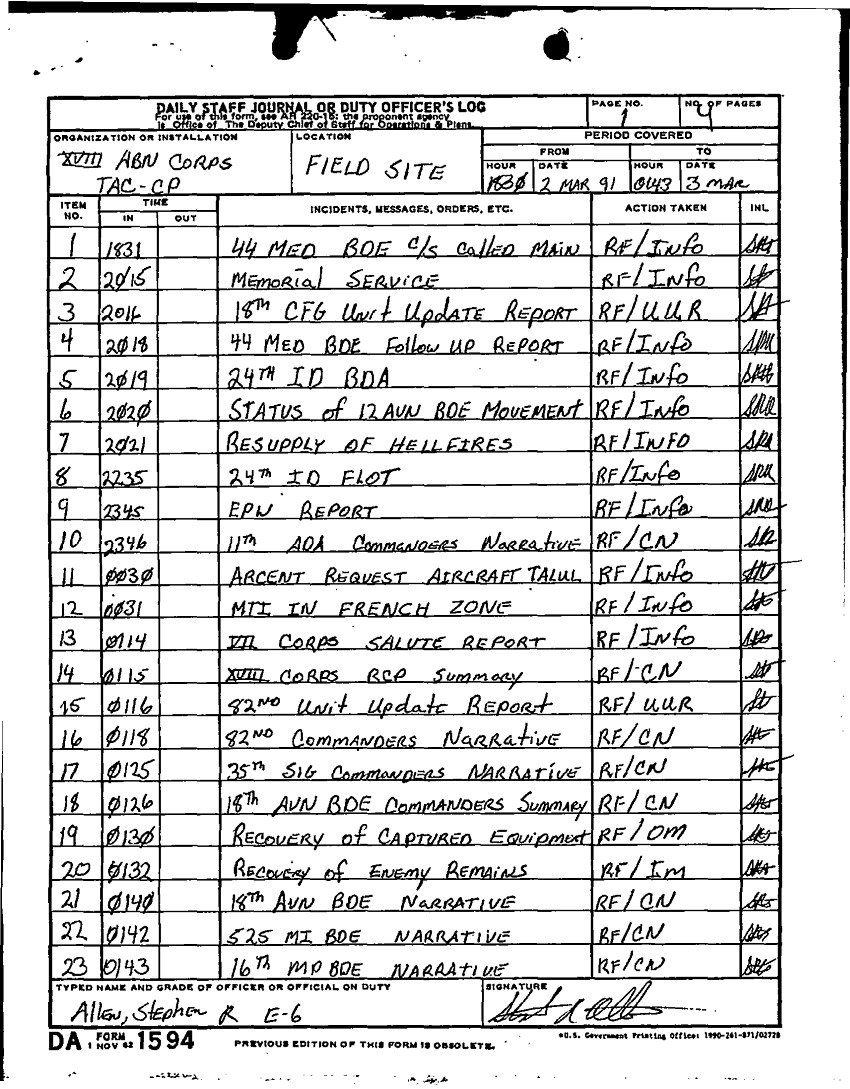 DAILY STAFF JOURNAL OR DUTY OFFICER'S LOG
For use of this form, see AR 220-15; the proponent agency
is Office of The Deputy Chief of Staff for Operations & Plans.
PAGE NO.
1
NO. OF PAGES
4
ORGANIZATION OR INSTALLATION
XVIII ABN CORPS
TAC-CP
LOCATION
FIELD SITE
PERIOD COVERED
FROM TO
HOUR DATE HOUR DATE
183Ø 2 MAR 91 0143 3 MAR
ITEM NO. TIME IN OUT INCIDENTS, MESSAGES, ORDERS, ETC. ACTION TAKEN INL
1 1831 44 MED BDE C/S Called MAIN RF/Info
2 2015 Memorial SERVICE RF/Info
3 2016 18TH CFG Unit UpDATE REPORT RF/UUR
4 2Ø18 44 MED BDE Follow UP REPORT RF/Info
5 2Ø19 24TH ID BDA RF/Info
6 2Ø2Ø STATUS of 12 AVN BDE MOVEMENT RF/Info
7 2Ø21 RESUPPLY OF HELLFIRES RF/INFO
8 2235 24TH ID FLOT RF/Info
9 2345 EPW REPORT RF/Info
10 2346 11TH ADA COMMANDERS NARRATIVE RF/CN
11 ØØ3Ø ARCENT REQUEST AIRCRAFT TALUL RF/Info
12 ØØ31 MTI IN FRENCH ZONE RF/Info
13 Ø114 VII CORPS SALUTE REPORT RF/Info
14 Ø115 XVIII CORPS RCP Summary RF/CN
15 Ø116 82ND Unit Update REPORT RF/UUR
16 Ø118 82ND COMMANDERS NARRATIVE RF/CN
17 Ø125 35TH SIG COMMANDERS NARRATIVE RF/CN
18 Ø126 18TH AVN BDE COMMANDERS SUMMARY RF/CN
19 Ø13Ø RECOVERY of CAPTURED EQUIPMENT RF/OM
20 Ø132 RECOVERY of ENEMY REMAINS RF/Im
21 Ø14Ø 18TH AVN BDE NARRATIVE RF/CN
22 Ø142 525 MI BDE NARRATIVE RF/CN
23 0143 16TH MP BDE NARRATIVE RF/CN
TYPED NAME AND GRADE OF OFFICER OR OFFICIAL ON DUTY
Allen, Stephen R E-6
SIGNATURE
DA FORM 1 NOV 62 1594
PREVIOUS EDITION OF THIS FORM IS OBSOLETE.
*U.S. Government Printing Office: 1990-261-871/02728